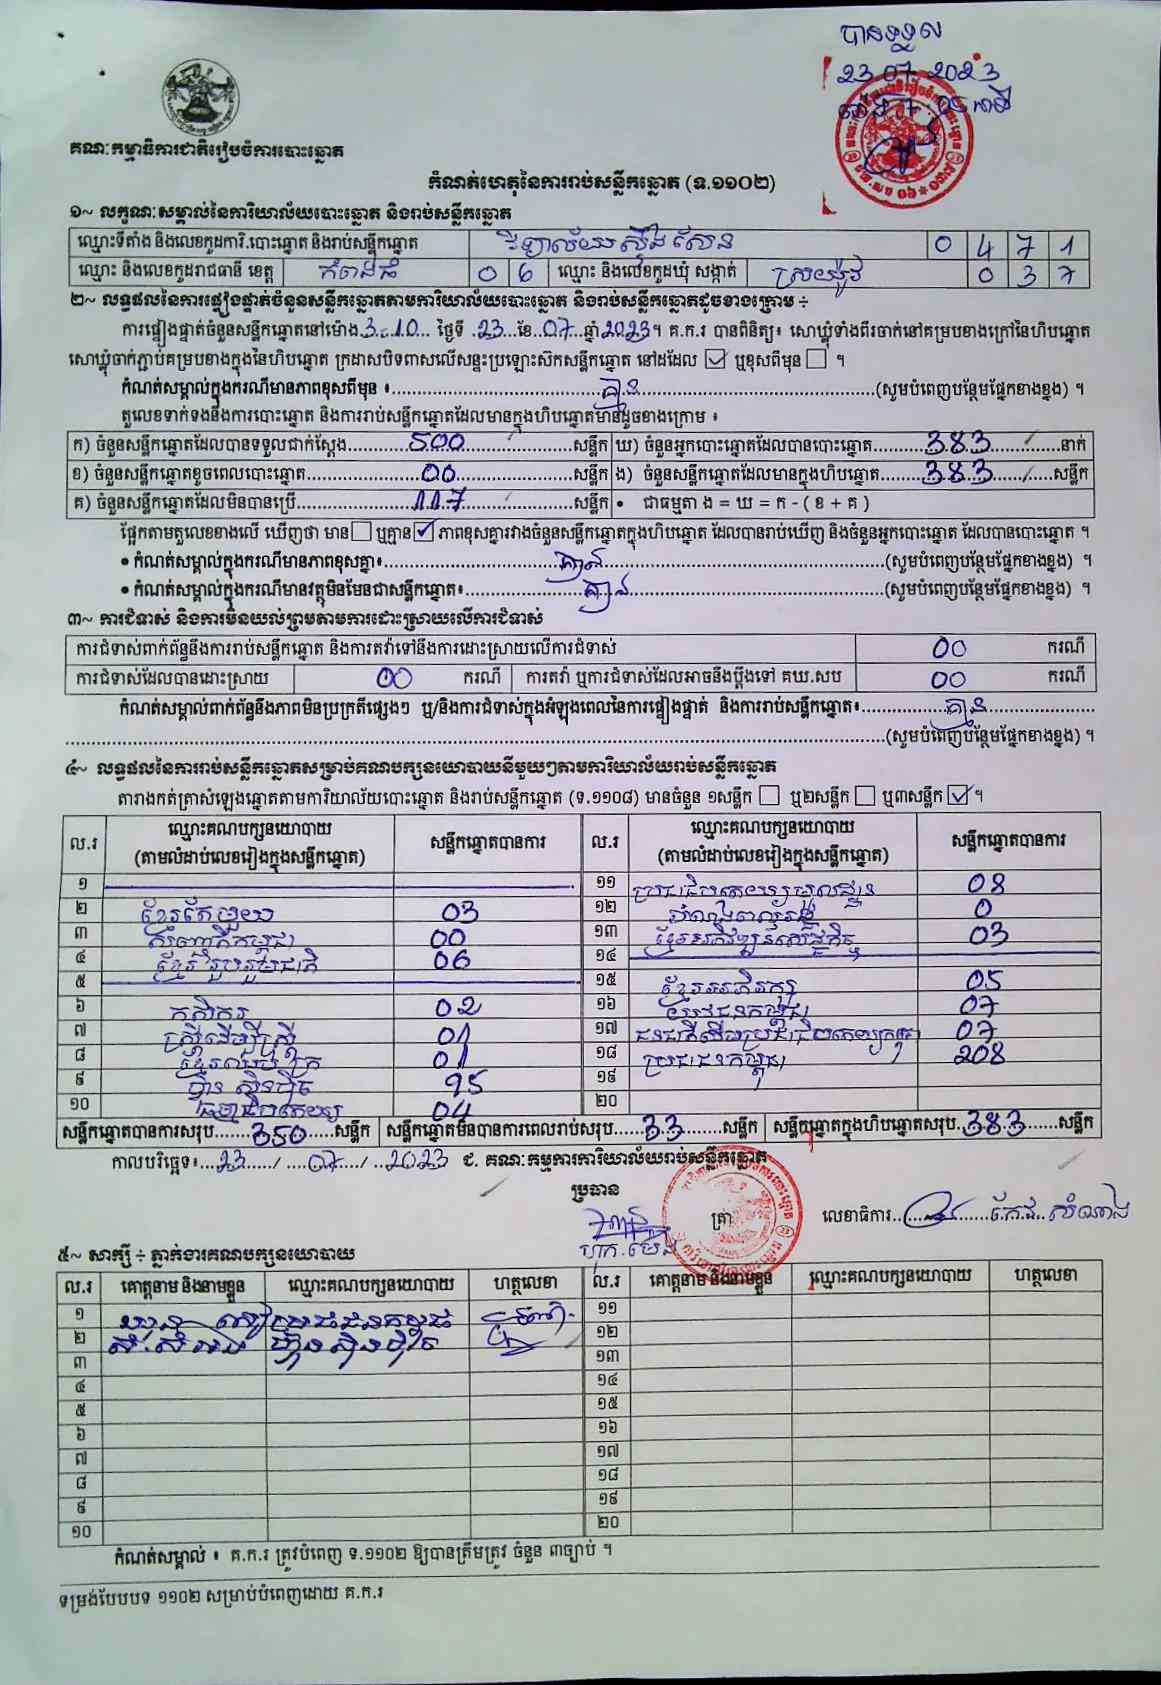 បានទទួល
23 07 2023
គណៈកម្មាធិការជាតិរៀបចំការបោះឆ្នោត
កំណត់ហេតុនៃការរាប់សន្លឹកឆ្នោត (ទ.១១០២)
១~ លក្ខណៈសម្គាល់នៃការិយាល័យបោះឆ្នោត និងរាប់សន្លឹកឆ្នោត
ឈ្មោះទីតាំង និងលេខកូដការិ.បោះឆ្នោត និងរាប់សន្លឹកឆ្នោត វិទ្យាល័យស្ទឹងសែន 0 4 7 1
ឈ្មោះ និងលេខកូដរាជធានី ខេត្ត កំពង់ធំ 0 6 ឈ្មោះ និងលេខកូដឃុំ សង្កាត់ ស្រយ៉ូវ 0 3 7
២~ លទ្ធផលនៃការផ្ទៀងផ្ទាត់ចំនួនសន្លឹកឆ្នោតតាមការិយាល័យបោះឆ្នោត និងរាប់សន្លឹកឆ្នោតដូចខាងក្រោម ÷
ការផ្ទៀងផ្ទាត់ចំនួនសន្លឹកឆ្នោតនៅម៉ោង.3:10... ថ្ងៃទី .23..ខែ.07..ឆ្នាំ2023។ គ.ក.រ បានពិនិត្យ៖ សោឃ្លុំទាំងពីរចាក់នៅគម្របខាងក្រៅនៃហិបឆ្នោត
សោឃ្លុំចាក់ភ្ជាប់គម្របខាងក្នុងនៃហិបឆ្នោត ក្រដាសបិទពាសលើសន្ទះប្រឡោះស៊កសន្លឹកឆ្នោត នៅដដែល ☑ ឬខុសពីមុន ☐ ។
កំណត់សម្គាល់ក្នុងករណីមានភាពខុសពីមុន ៖ គ្មាន (សូមបំពេញបន្ថែមផ្នែកខាងខ្នង) ។
តួលេខទាក់ទងនឹងការបោះឆ្នោត និងការរាប់សន្លឹកឆ្នោតដែលមានក្នុងហិបឆ្នោតមានដូចខាងក្រោម ៖
ក) ចំនួនសន្លឹកឆ្នោតដែលបានទទួលជាក់ស្តែង 500 សន្លឹក ឃ) ចំនួនអ្នកបោះឆ្នោតដែលបានបោះឆ្នោត 383 នាក់
ខ) ចំនួនសន្លឹកឆ្នោតខូចពេលបោះឆ្នោត 00 សន្លឹក ង) ចំនួនសន្លឹកឆ្នោតដែលមានក្នុងហិបឆ្នោត 383 សន្លឹក
គ) ចំនួនសន្លឹកឆ្នោតដែលមិនបានប្រើ 117 សន្លឹក • ជាធម្មតា ង = ឃ = ក - ( ខ + គ )
ផ្អែកតាមតួលេខខាងលើ ឃើញថា មាន ☐ ឬគ្មាន ☑ ភាពខុសគ្នារវាងចំនួនសន្លឹកឆ្នោតក្នុងហិបឆ្នោត ដែលបានរាប់ឃើញ និងចំនួនអ្នកបោះឆ្នោត ដែលបានបោះឆ្នោត ។
• កំណត់សម្គាល់ក្នុងករណីមានភាពខុសគ្នា៖ គ្មាន (សូមបំពេញបន្ថែមផ្នែកខាងខ្នង) ។
• កំណត់សម្គាល់ក្នុងករណីមានវត្ថុមិនមែនជាសន្លឹកឆ្នោត៖ គ្មាន (សូមបំពេញបន្ថែមផ្នែកខាងខ្នង) ។
៣~ ការជំទាស់ និងការមិនយល់ព្រមតាមការដោះស្រាយលើការជំទាស់
ការជំទាស់ពាក់ព័ន្ធនឹងការរាប់សន្លឹកឆ្នោត និងការតវ៉ាទៅនឹងការដោះស្រាយលើការជំទាស់ 00 ករណី
ការជំទាស់ដែលបានដោះស្រាយ 00 ករណី ការតវ៉ា ឬការជំទាស់ដែលអាចនឹងប្តឹងទៅ គឃ.សប 00 ករណី
កំណត់សម្គាល់ពាក់ព័ន្ធនឹងភាពមិនប្រក្រតីផ្សេងៗ ឬ/និងការជំទាស់ក្នុងអំឡុងពេលនៃការផ្ទៀងផ្ទាត់ និងការរាប់សន្លឹកឆ្នោត៖ គ្មាន
(សូមបំពេញបន្ថែមផ្នែកខាងខ្នង) ។
៤~ លទ្ធផលនៃការរាប់សន្លឹកឆ្នោតសម្រាប់គណបក្សនយោបាយនីមួយៗតាមការិយាល័យរាប់សន្លឹកឆ្នោត
តារាងកត់ត្រាសំឡេងឆ្នោតតាមការិយាល័យបោះឆ្នោត និងរាប់សន្លឹកឆ្នោត (ទ.១១០៨) មានចំនួន ១សន្លឹក ☐ ឬ២សន្លឹក ☐ ឬ៣សន្លឹក ☑ ។
ល.រ ឈ្មោះគណបក្សនយោបាយ (តាមលំដាប់លេខរៀងក្នុងសន្លឹកឆ្នោត) សន្លឹកឆ្នោតបានការ ល.រ ឈ្មោះគណបក្សនយោបាយ (តាមលំដាប់លេខរៀងក្នុងសន្លឹកឆ្នោត) សន្លឹកឆ្នោតបានការ
១ ១១ ប្រជាធិបតេយ្យមូលដ្ឋាន 08
២ ខ្មែរតែមួយ 03 ១២ 0
៣ សញ្ជាតិកម្ពុជា 00 ១៣ ខ្មែរអភិវឌ្ឍន៍សេដ្ឋកិច្ច 03
៤ ខ្មែររួបរួមជាតិ 06 ១៤
៥ ១៥ ខ្មែរអភិរក្ស 05
៦ កសិករ 02 ១៦ យុវជនកម្ពុជា 07
៧ ស្ត្រីដើម្បីស្ត្រី 01 ១៧ ជនជាតិដើមប្រជាធិបតេយ្យកម្ពុជា 07
៨ ខ្មែរឈប់ក្រ 01 ១៨ ប្រជាជនកម្ពុជា 208
៩ ហ៊្វុនស៊ិនប៉ិច 95 ១៩
១០ ប្រជាធិបតេយ្យ 04 ២០
សន្លឹកឆ្នោតបានការសរុប 350 សន្លឹក សន្លឹកឆ្នោតមិនបានការពេលរាប់សរុប 33 សន្លឹក សន្លឹកឆ្នោតក្នុងហិបឆ្នោតសរុប 383 សន្លឹក
កាលបរិច្ឆេទ៖ 23 / 07 / 2023 ជ. គណៈកម្មការការិយាល័យរាប់សន្លឹកឆ្នោត
ប្រធាន
ត្រា លេខាធិការ កែវ សំណាង
៥~ សាក្សី ÷ ភ្នាក់ងារគណបក្សនយោបាយ
ល.រ គោត្តនាម និងនាមខ្លួន ឈ្មោះគណបក្សនយោបាយ ហត្ថលេខា ល.រ គោត្តនាម និងនាមខ្លួន ឈ្មោះគណបក្សនយោបាយ ហត្ថលេខា
១ ប្រជាជនកម្ពុជា ១១
២ ហ៊្វុនស៊ិនប៉ិច ១២
៣ ១៣
៤ ១៤
៥ ១៥
៦ ១៦
៧ ១៧
៨ ១៨
៩ ១៩
១០ ២០
កំណត់សម្គាល់ ៖ គ.ក.រ ត្រូវបំពេញ ទ.១១០២ ឱ្យបានត្រឹមត្រូវ ចំនួន ៣ច្បាប់ ។
ទម្រង់បែបបទ ១១០២ សម្រាប់បំពេញដោយ គ.ក.រ